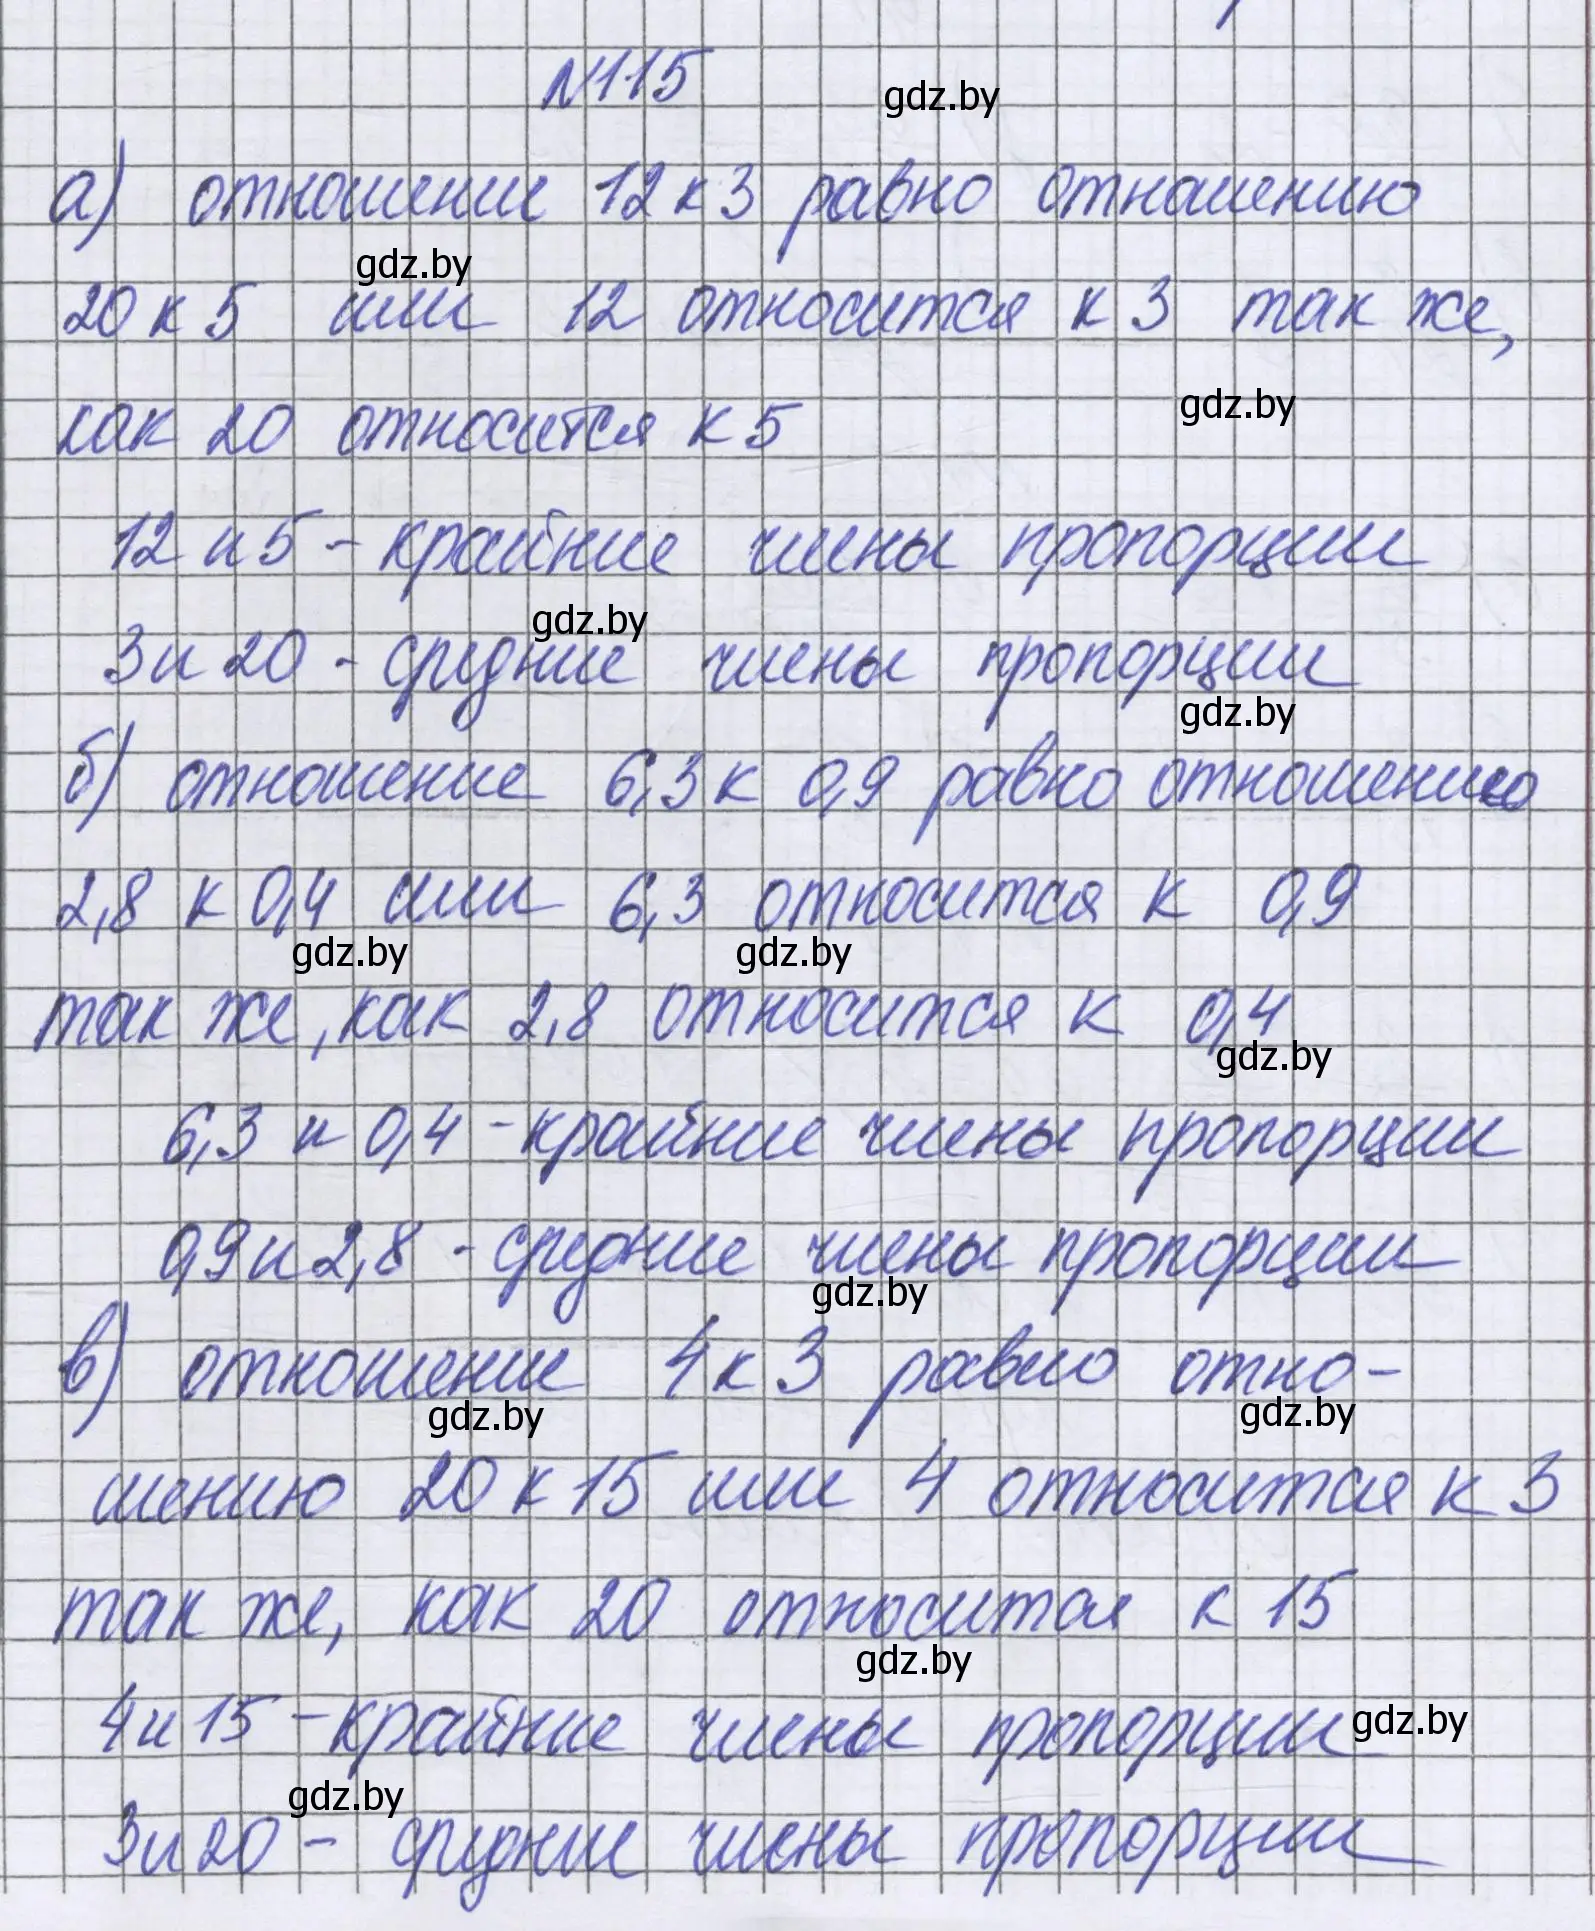 №115
gdz.by
а) отношение 12 к 3 равно отношению
gdz.by
20 к 5 или 12 относится к 3 так же,
gdz.by
как 20 относится к 5
12 и 5 - крайние члены пропорции
gdz.by
3 и 20 - средние члены пропорции
gdz.by
б) отношение 6,3 к 0,9 равно отношению
2,8 к 0,4 или 6,3 относится к 0,9
gdz.by gdz.by
так же, как 2,8 относится к 0,4
gdz.by
6,3 и 0,4 - крайние члены пропорции
0,9 и 2,8 - средние члены пропорции
gdz.by
в) отношение 4 к 3 равно отно-
gdz.by gdz.by
шению 20 к 15 или 4 относится к 3
так же, как 20 относится к 15
gdz.by
4 и 15 - крайние члены пропорции gdz.by
gdz.by
3 и 20 - средние члены пропорции